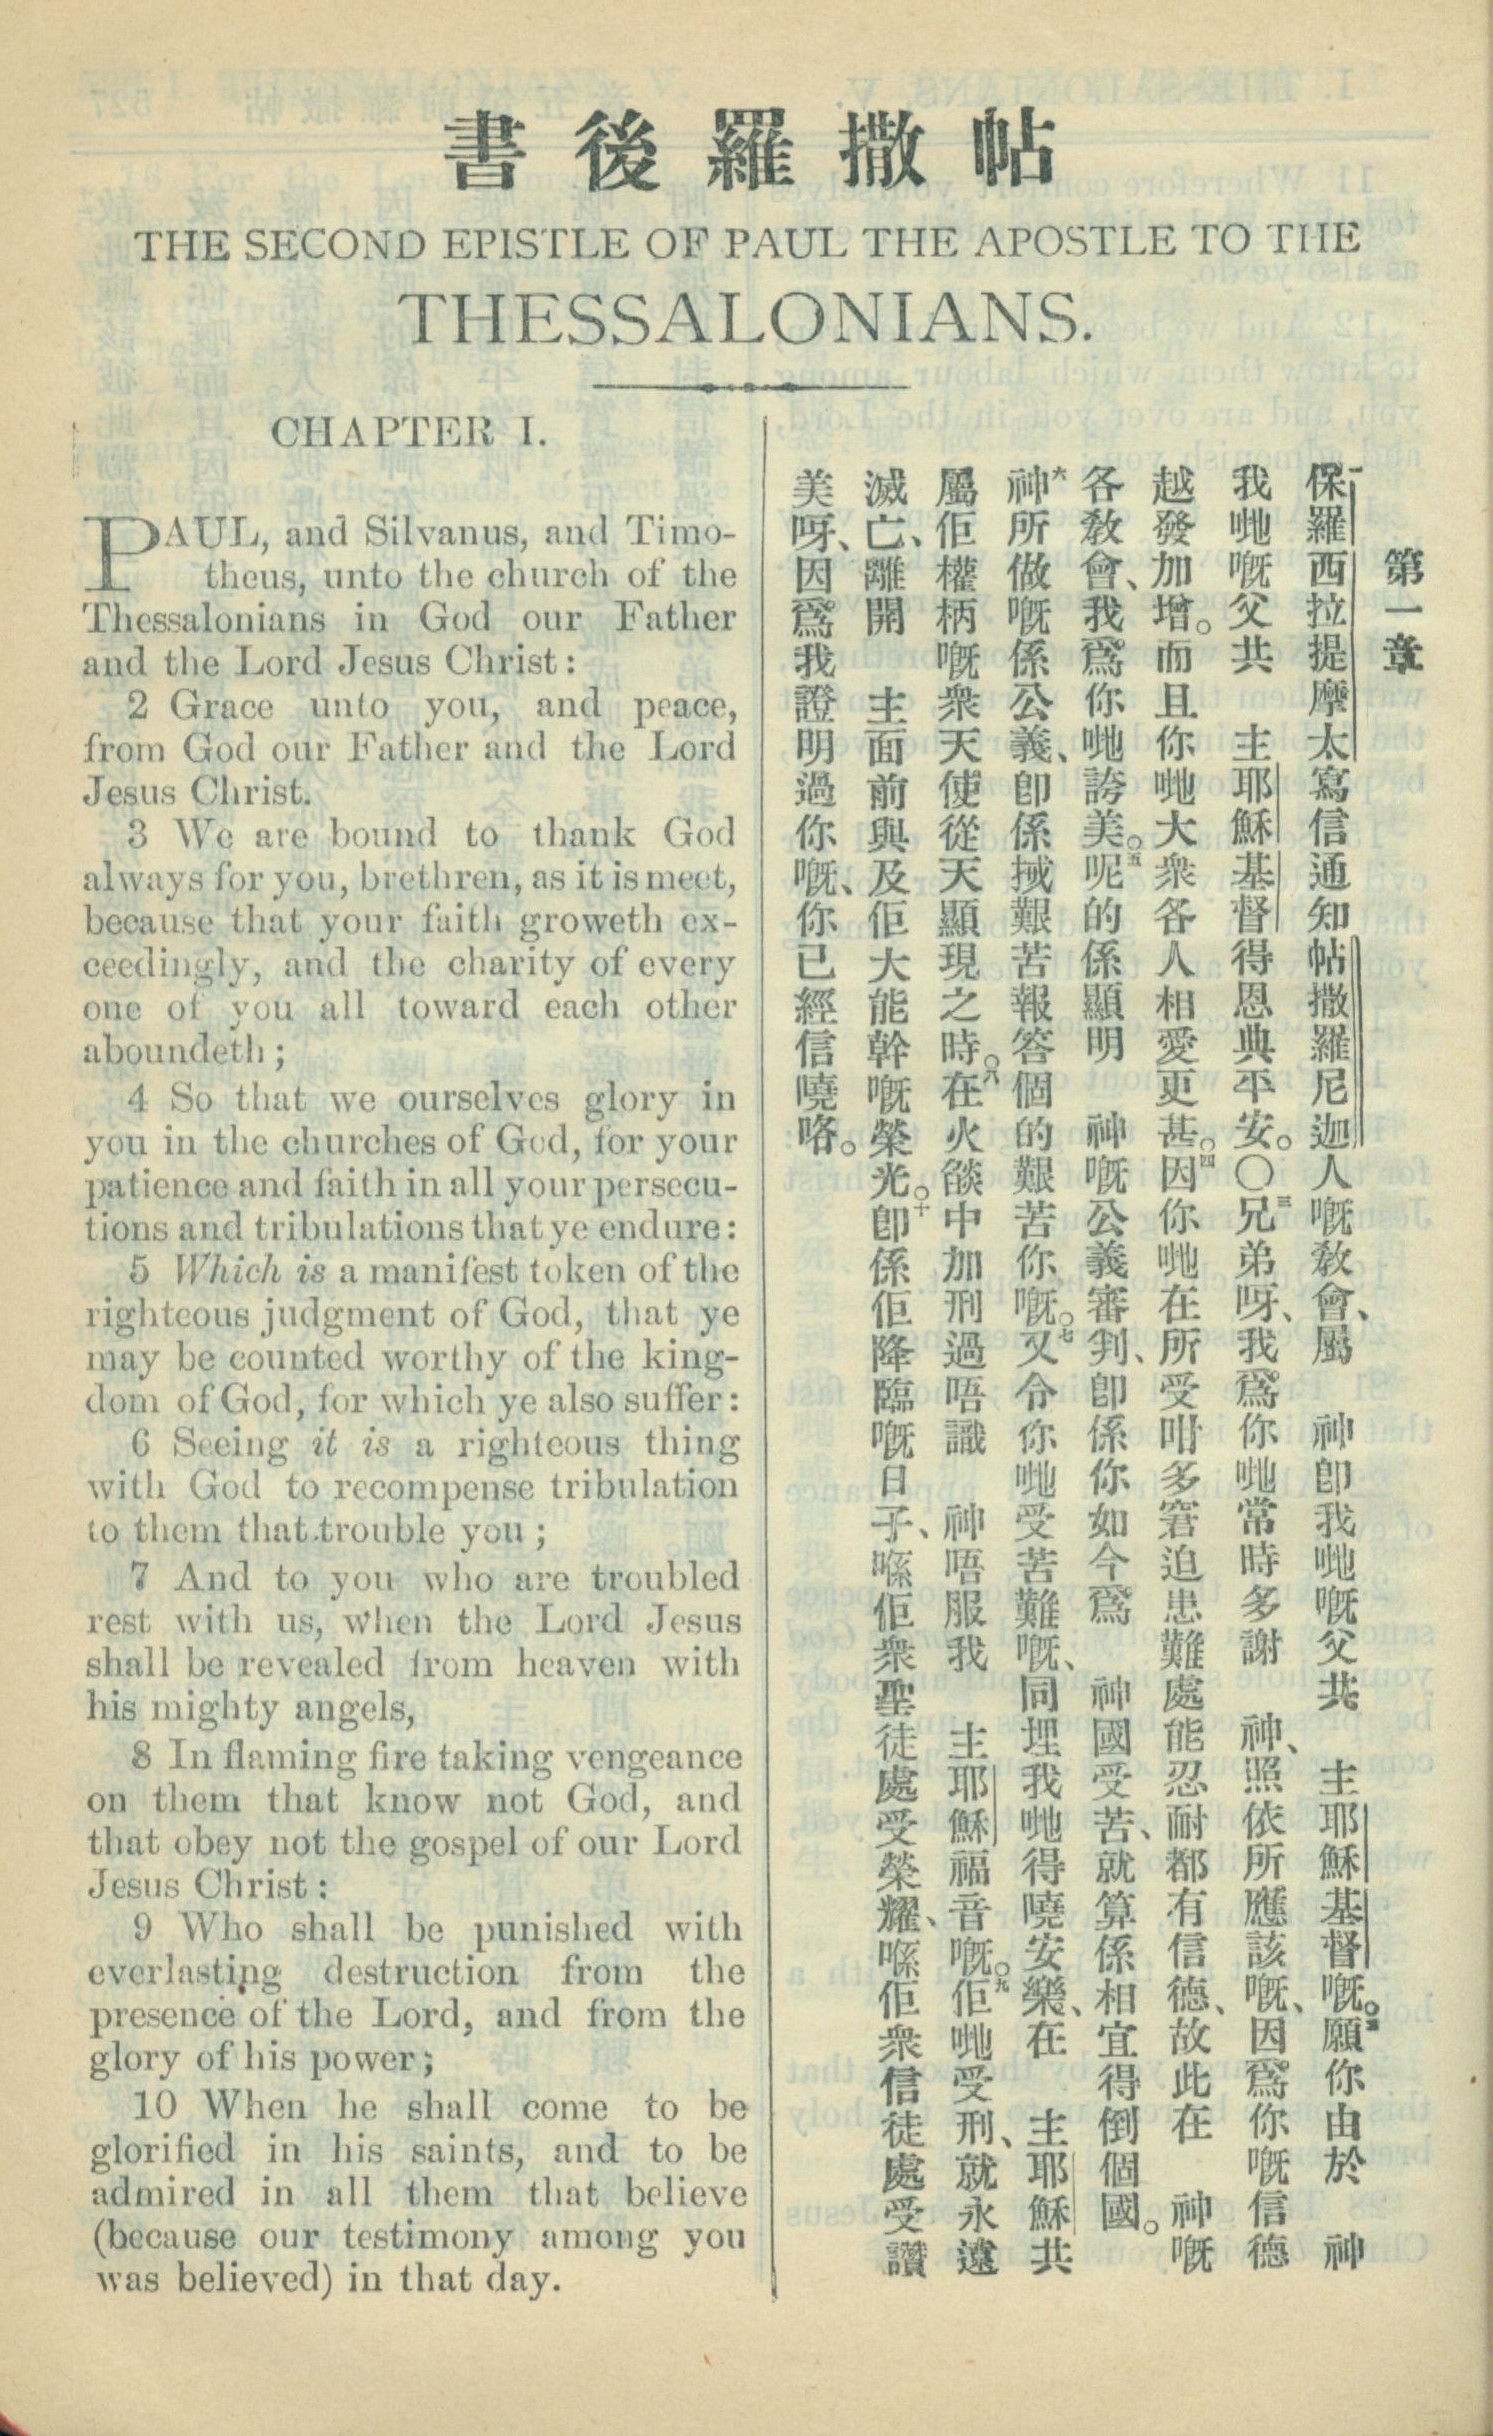 書後羅撒帖
THE SECOND EPISTLE OF PAUL THE APOSTLE TO THE
THESSALONIANS.
CHAPTER I.
PAUL, and Silvanus, and Timo-
theus, unto the church of the
Thessalonians in God our Father
and the Lord Jesus Christ:
2 Grace unto you, and peace,
from God our Father and the Lord
Jesus Christ.
3 We are bound to thank God
always for you, brethren, as it is meet,
because that your faith groweth ex-
ceedingly, and the charity of every
one of you all toward each other
aboundeth;
4 So that we ourselves glory in
you in the churches of God, for your
patience and faith in all your persecu-
tions and tribulations that ye endure:
5 Which is a manifest token of the
righteous judgment of God, that ye
may be counted worthy of the king-
dom of God, for which ye also suffer:
6 Seeing it is a righteous thing
with God to recompense tribulation
to them that trouble you;
7 And to you who are troubled
rest with us, when the Lord Jesus
shall be revealed from heaven with
his mighty angels,
8 In flaming fire taking vengeance
on them that know not God, and
that obey not the gospel of our Lord
Jesus Christ:
9 Who shall be punished with
everlasting destruction from the
presence of the Lord, and from the
glory of his power;
10 When he shall come to be
glorified in his saints, and to be
admired in all them that believe
(because our testimony among you
was believed) in that day.
第一章
一保羅西拉提摩太寫信通知帖撒羅尼迦人嘅教會、屬 神卽我哋嘅父共 主耶穌基督嘅。二願你由於 神
我哋嘅父共 主耶穌基督得恩典平安。〇三兄弟呀、我爲你哋常時多謝 神、照依所應該嘅、因爲你嘅信德
越發加增。而且你哋大衆各人相愛更甚。四因你哋在所受咁多窘迫患難處能忍耐都有信德、故此在 神嘅
各教會、我爲你哋誇美。五呢的係顯明 神嘅公義審判、卽係你如今爲 神國受苦、就算係相宜得倒個國。
六神所做嘅係公義、卽係𢬿艱苦報答個的艱苦你嘅。七又令你哋受苦難嘅、同埋我哋得嘵安樂、在 主耶穌共
屬佢權柄嘅衆天使從天顯現之時。八在火燄中加刑過唔識 神唔服我 主耶穌福音嘅。九佢哋受刑、就永遠
滅亡、離開 主面前與及佢大能幹嘅榮光。十卽係佢降臨嘅日子、喺佢衆聖徒處受榮耀、喺佢衆信徒處受讚
美呀、因爲我證明過你嘅、你已經信嘵咯。